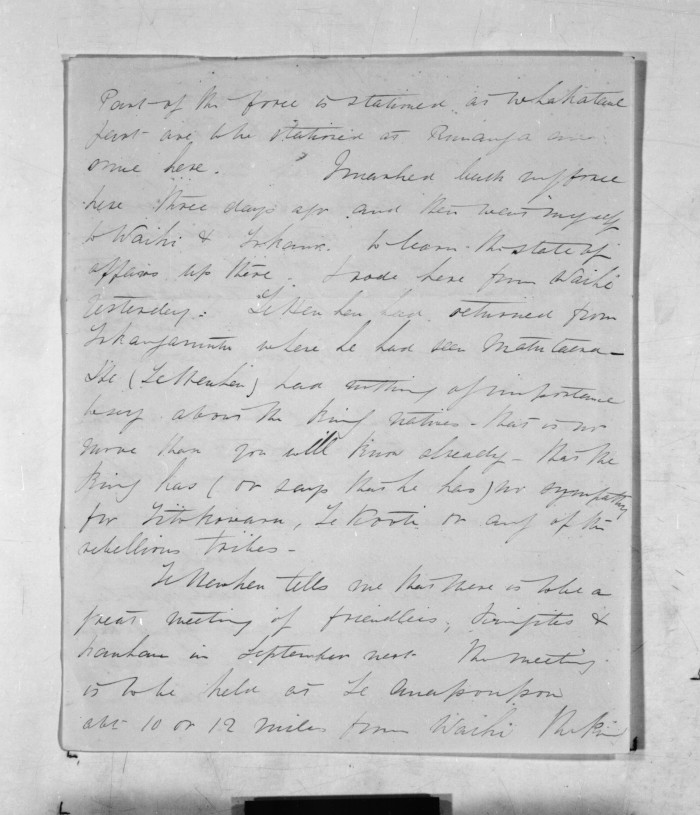 Part of the force is stationed at Whakatane
part are to be stationed at Runanga and
some here. I marched back my force
here three days ago and then went myself
to Waihi & Tokanu to learn the state of
affairs up there. I rode here from Waihi
yesterday. Te Heuheu had returned from
Tokangamutu where he had seen Matutaera
He (Te Heuheu) had nothing of importance
to say about the King natives - that is no
more than you will know already - that the
King has (or says that he has) no sympathy
for Titokowaru, Te Kooti or any of the
rebellious tribes -
Te Heuheu tells me that there is to be a
great meeting of friendlies, Kingites &
Hauhau in September next The meeting
is to be held at Te
abt 10 or 12 miles from Waihi The